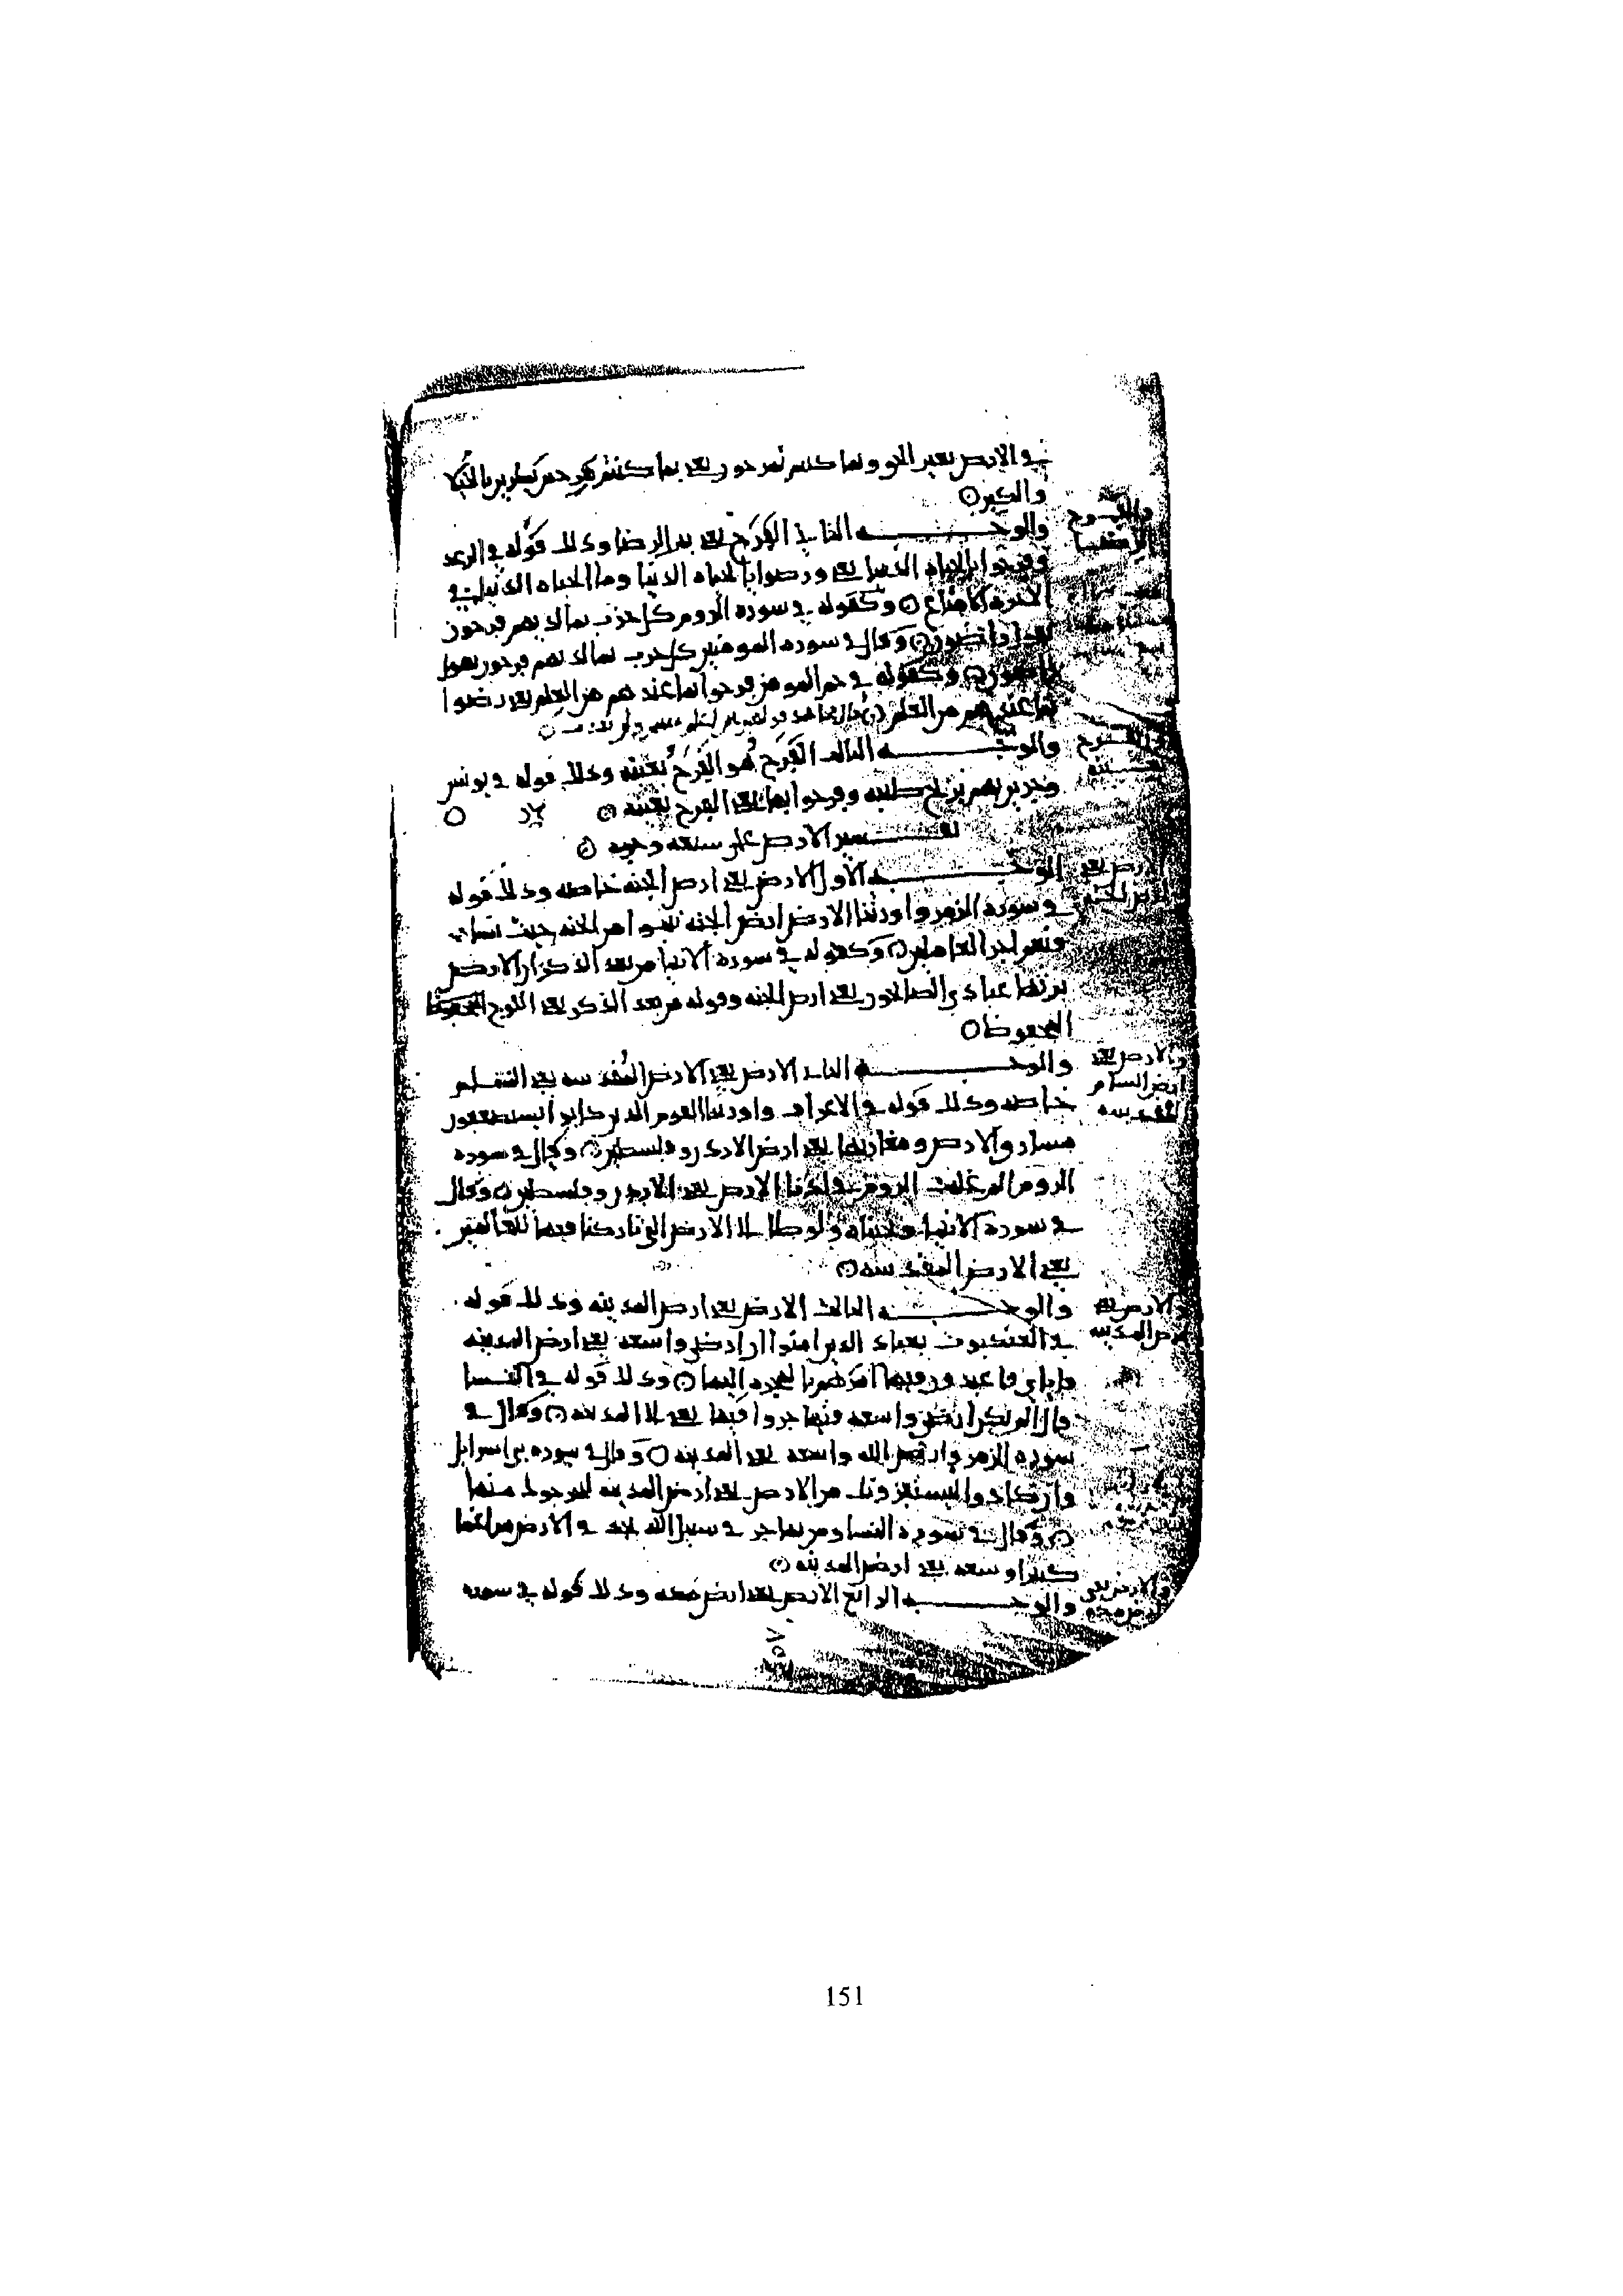 في الارض بغير الحق وبما كنتم تمرحون يعني بما كنتم
والكبر
والوجه الثاني الفرح يعني الرضا وذلك قوله في الرعد
وفرحوا بالحياه الدنيا يعني ورضوا بالحياه الدنيا وما الحياه الدنيا في
الاخره الا متاع وكقوله في سوره الروم كل حزب بما لديهم فرحون
يعني راضون وقال في سوره المومنين كل حزب بما لديهم فرحون يقول
راضون وكقوله في حم المومن فرحوا بما عندهم من العلم يعني رضوا
بما عندهم من العلم
والوجه الثالث الفرح هو الفرح بعينه وذلك قوله في يونس
وجرين بهم بريح طيبه وفرحوا بها يعني الفرح بعينه
تفسير الارض على سبعه وجوه
الوجه الاول الارض يعني ارض الجنه خاصه وذلك قوله
في سوره الزمر واورثنا الارض ارض الجنه نتبوا من الجنه حيث نشاء
فنعم اجر العاملين وكقوله في سوره الانبيا من بعد الذكر ان الارض
يرثها عبادي الصالحون يعني ارض الجنه وقوله من بعد الذكر يعني اللوح المحفوظ
المحفوظ
والوجه الثاني الارض يعني الارض المقدسه يعني الشام
خاصه وذلك قوله في الاعراف واورثنا القوم الذين كانوا يستضعفون
مشارق الارض ومغاربها يعني ارض الاردن وفلسطين وقال في سوره
الروم الم غلبت الروم في ادنا الارض يعني الاردن وفلسطين وقال
في سوره الانبيا ونجيناه ولوطا الى الارض التي باركنا فيها للعالمين
يعني الارض المقدسه
والوجه الثالث الارض يعني ارض المدينه وذلك قوله
في العنكبوت يعباد الذين امنوا ان ارضي واسعه يعني ارض المدينه
فاياي فاعبدون فيها امرهم بالهجره اليها وذلك قوله في النسا
قال الم تكن ارض الله واسعه فتهاجروا فيها يعني الى المدينه وقال في
سوره الزمر وارض الله واسعه يعني المدينه وقال في سوره بني اسرايل
وان كادوا ليستفزونك من الارض يعني ارض المدينه ليخرجوك منها
وقال في سوره النسا ومن يهاجر في سبيل الله يجد في الارض مراغما
كثيرا وسعه يعني ارض المدينه
والوجه الرابع الارض يعني ارض مكه وذلك قوله في سوره
والفرح
الرضا
والفرح
بعينه
الارض يعني
ارض الجنه
والارض يعني
ارض الشام
المقدسه
والارض يعني
ارض المدينه
والارض يعني
ارض مكه
151